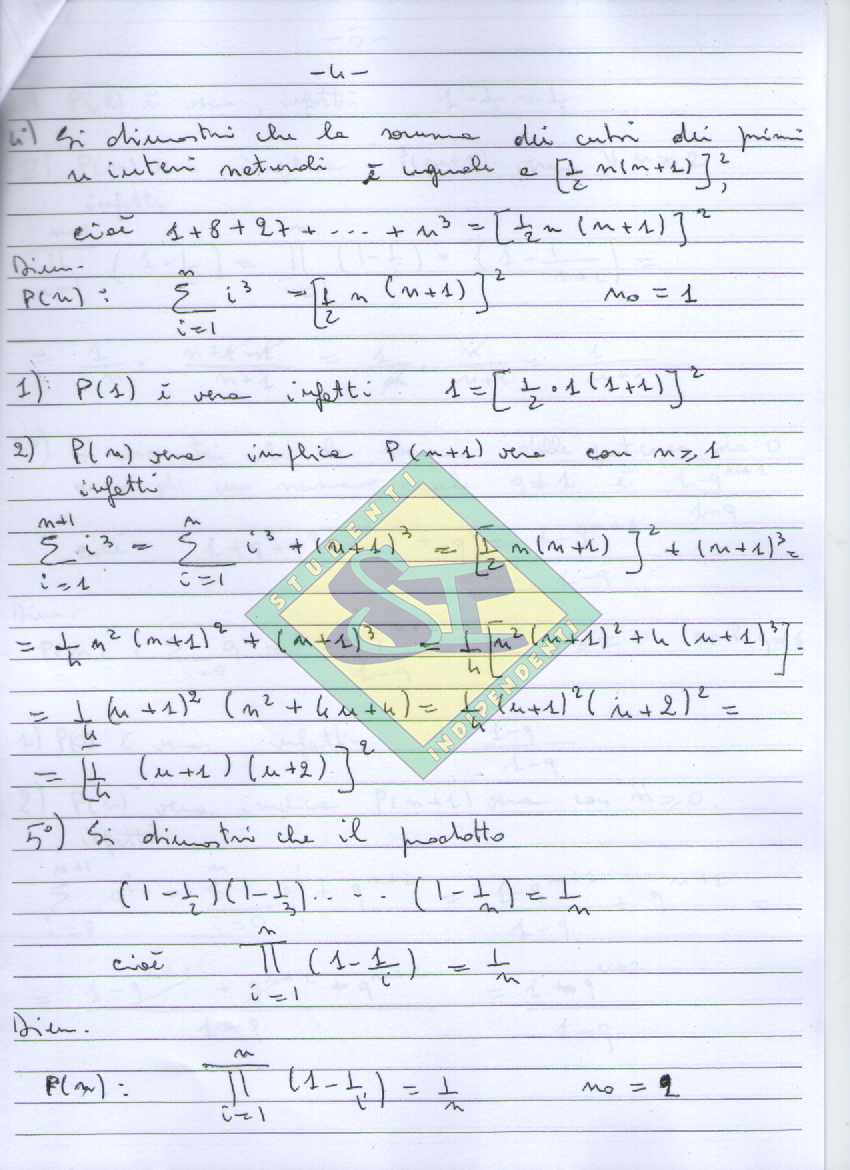 -4-
4°) Si dimostri che la somma dei cubi dei primi
n interi naturali è uguale a [1/2 n(n+1)]²,
cioè 1+8+27+ ... + n³ = [1/2 n (n+1)]²
Dim.
P(n): n∑i=1 i³ = [1/2 n (n+1)]² n₀ = 1
1) P(1) è vera infatti 1=[1/2 · 1(1+1)]²
2) P(n) vera implica P(n+1) vera con n≥1
infatti
n+1∑i=1 i³ = n∑i=1 i³ + (n+1)³ = [1/2 n(n+1)]² + (n+1)³ =
= 1/4 n² (n+1)² + (n+1)³ = 1/4 [n² (n+1)² + 4 (n+1)³] =
= 1/4 (n+1)² (n² + 4n+4) = 1/4 (n+1)² (n+2)² =
= [1/4 (n+1) (n+2)]²
5°) Si dimostri che il prodotto
(1-1/2)(1-1/3).... (1-1/n) = 1/n
cioè n∏i=1 (1-1/i) = 1/n
Dim.
P(n): n∏i=1 (1-1/i) = 1/n n₀ = 2
STUDENTI
SI
INDIPENDENTI